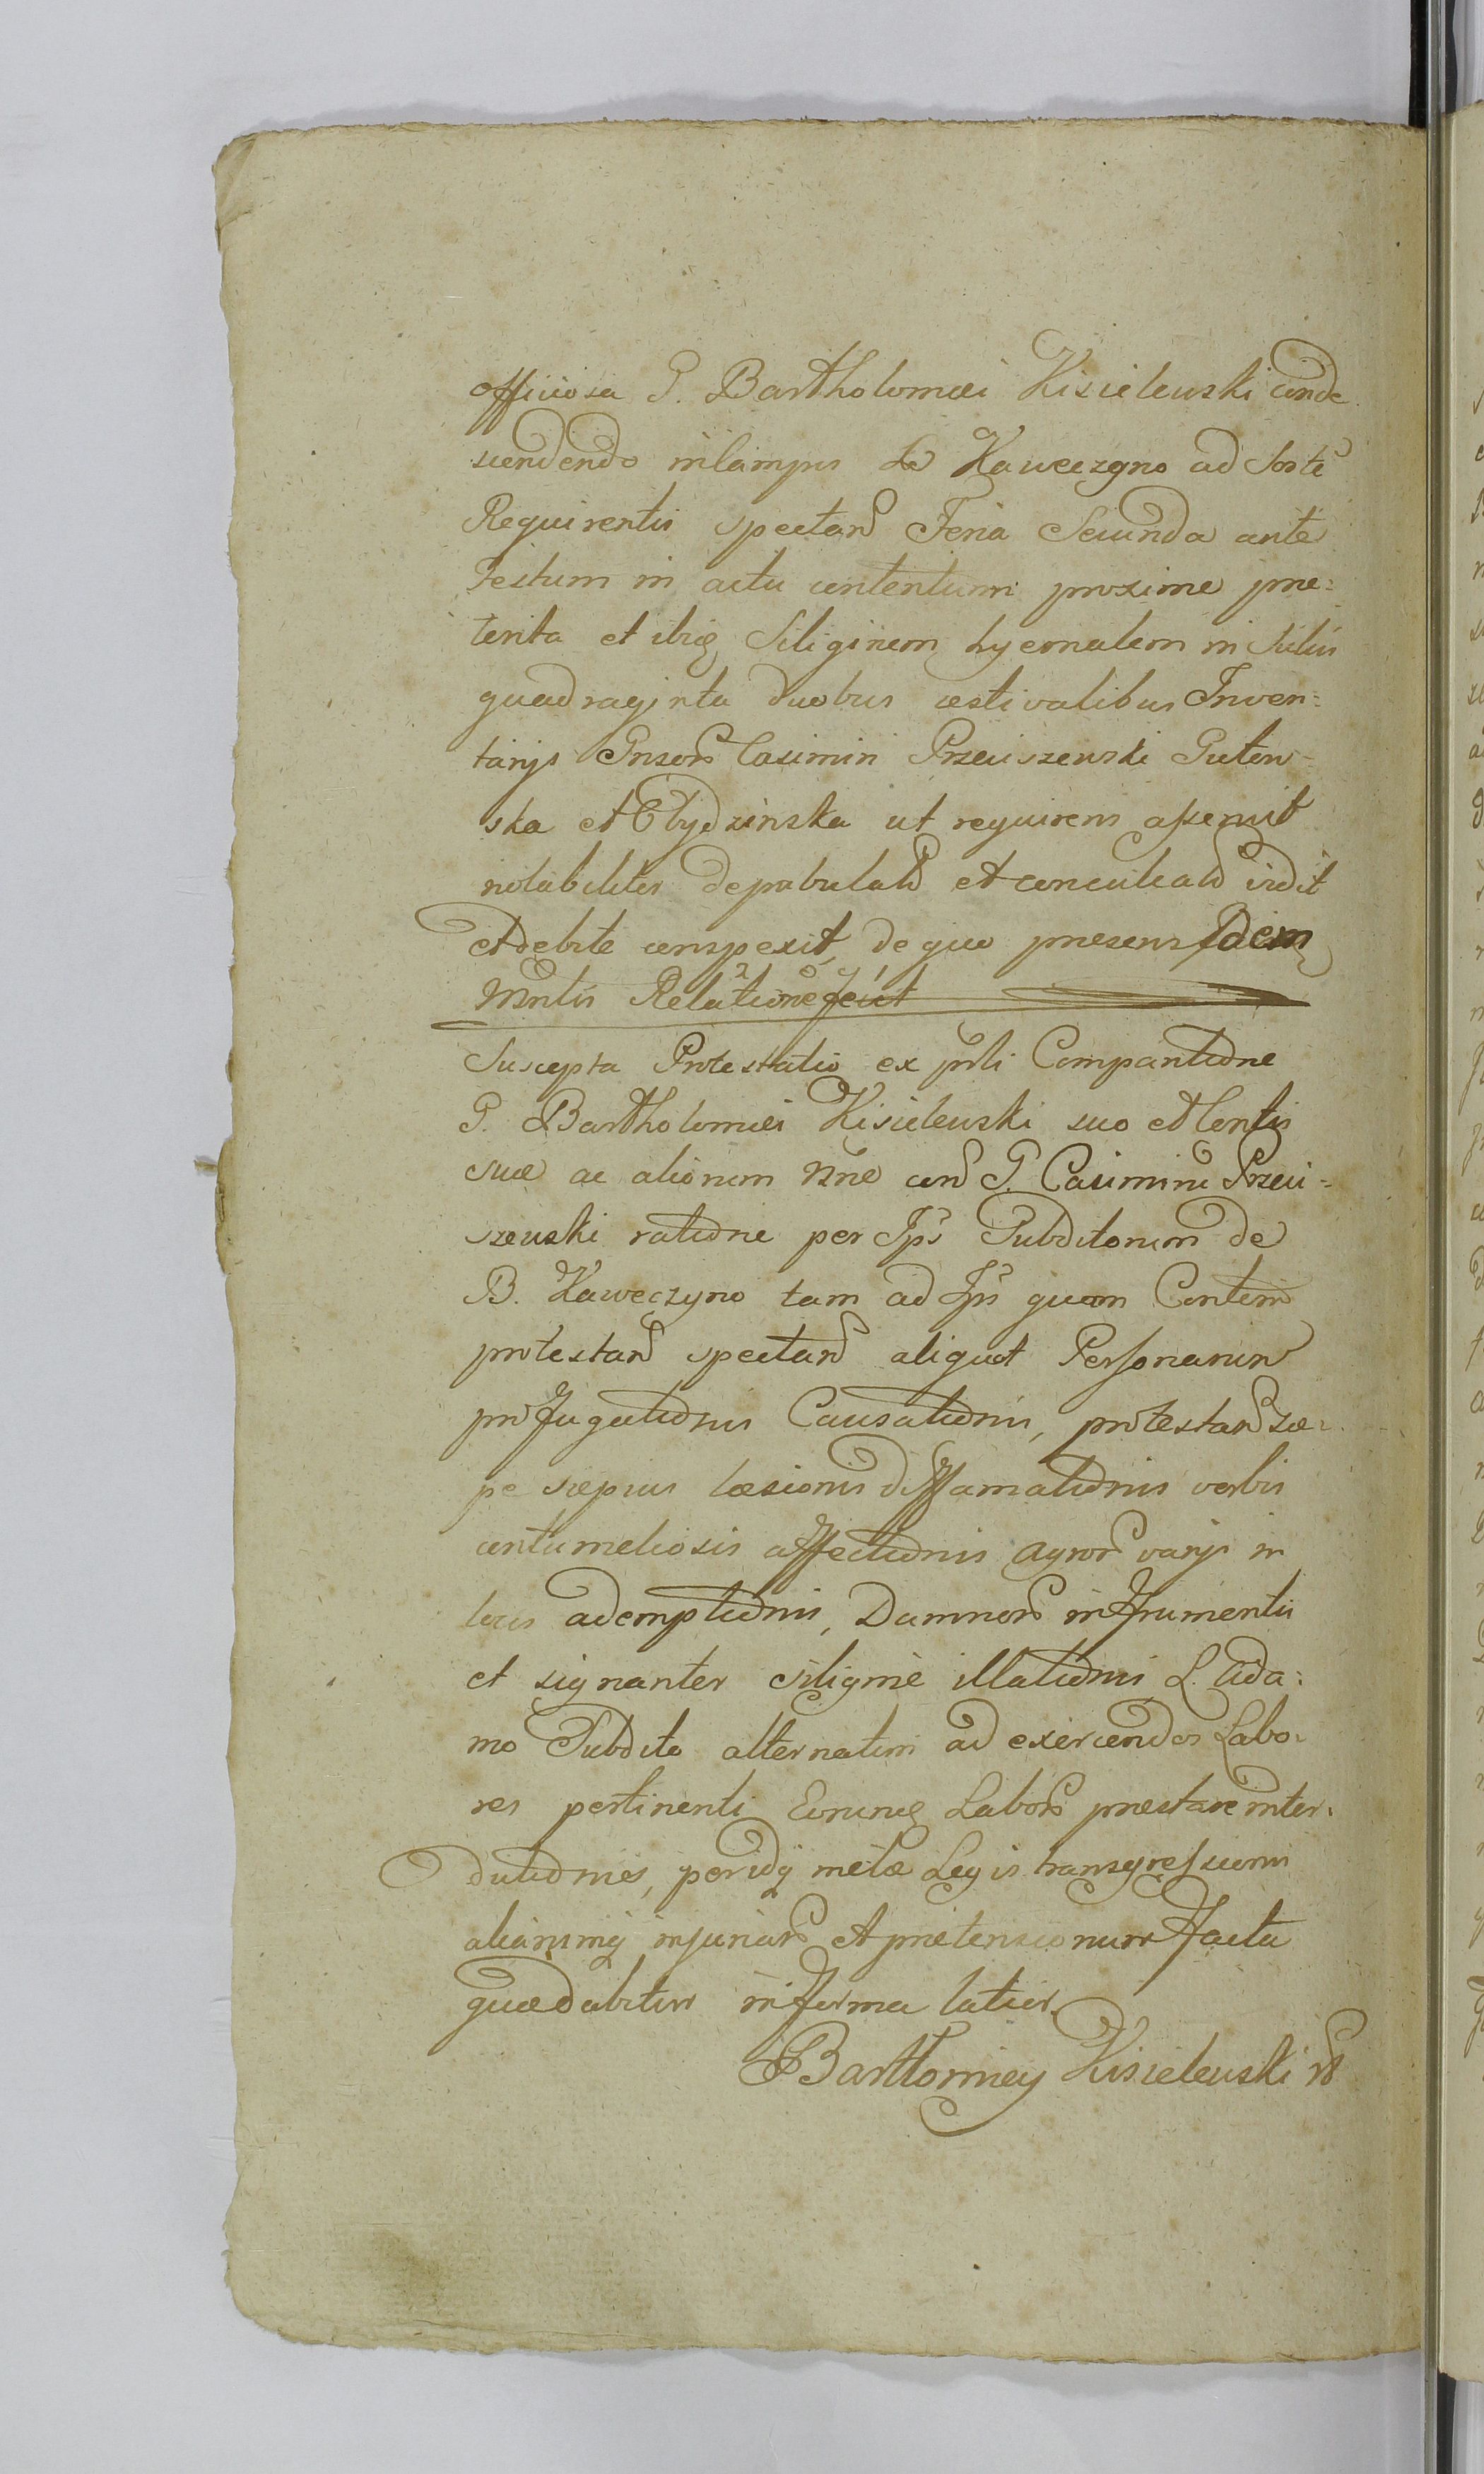 officiosa G. Bartholomæi Kisielewski conde
scendendo in campis de Kaweczyno ad Sortē
Requirentis spectand Feria Secunda ante
Festum in actu contentum proxime præ=
terita et ibiq Siliginem hyemalem in Sulcis
quadraginta duobus æstivalibus Inven=
tarys Gnsor Casimiri Przeciszewski Guten=
ska et Obydzinska ut requirens asseruit
notabiliter depabulatd et conculcatd vidit
et debite conspexit, de quo præsens Idem
Mntlis Relationē fecit
Suscepta Protestatio ex prli Comparitione
G. Bartholomæi Kisielewski suo et Contlis
suæ ac aliorum Nne con G. Casimirū Przeci=
szewski ratione per Ips Subditorum de
B. Kaweczyno tam ad Ips quam Contem
protestand spectand aliquot Personarum
profugationis Causationis, protestand sæ=
pe sæpius læsionis diffamationis verbis
contumeliosis affectionis Agror varys in
locis ademptionis, Damnor in frumentis
et signanter siliginē illationis, L. Ada=
mo Subdito alternatim ad exercendos Labo=
res pertinenti Eorumq Labor præstare inter=
dutionis, per idq metæ Legis transgressionis
aliarumq injuriar et prætensionum facta
quæ dabitur in forma latior.
Bartłomiey Kisielewski